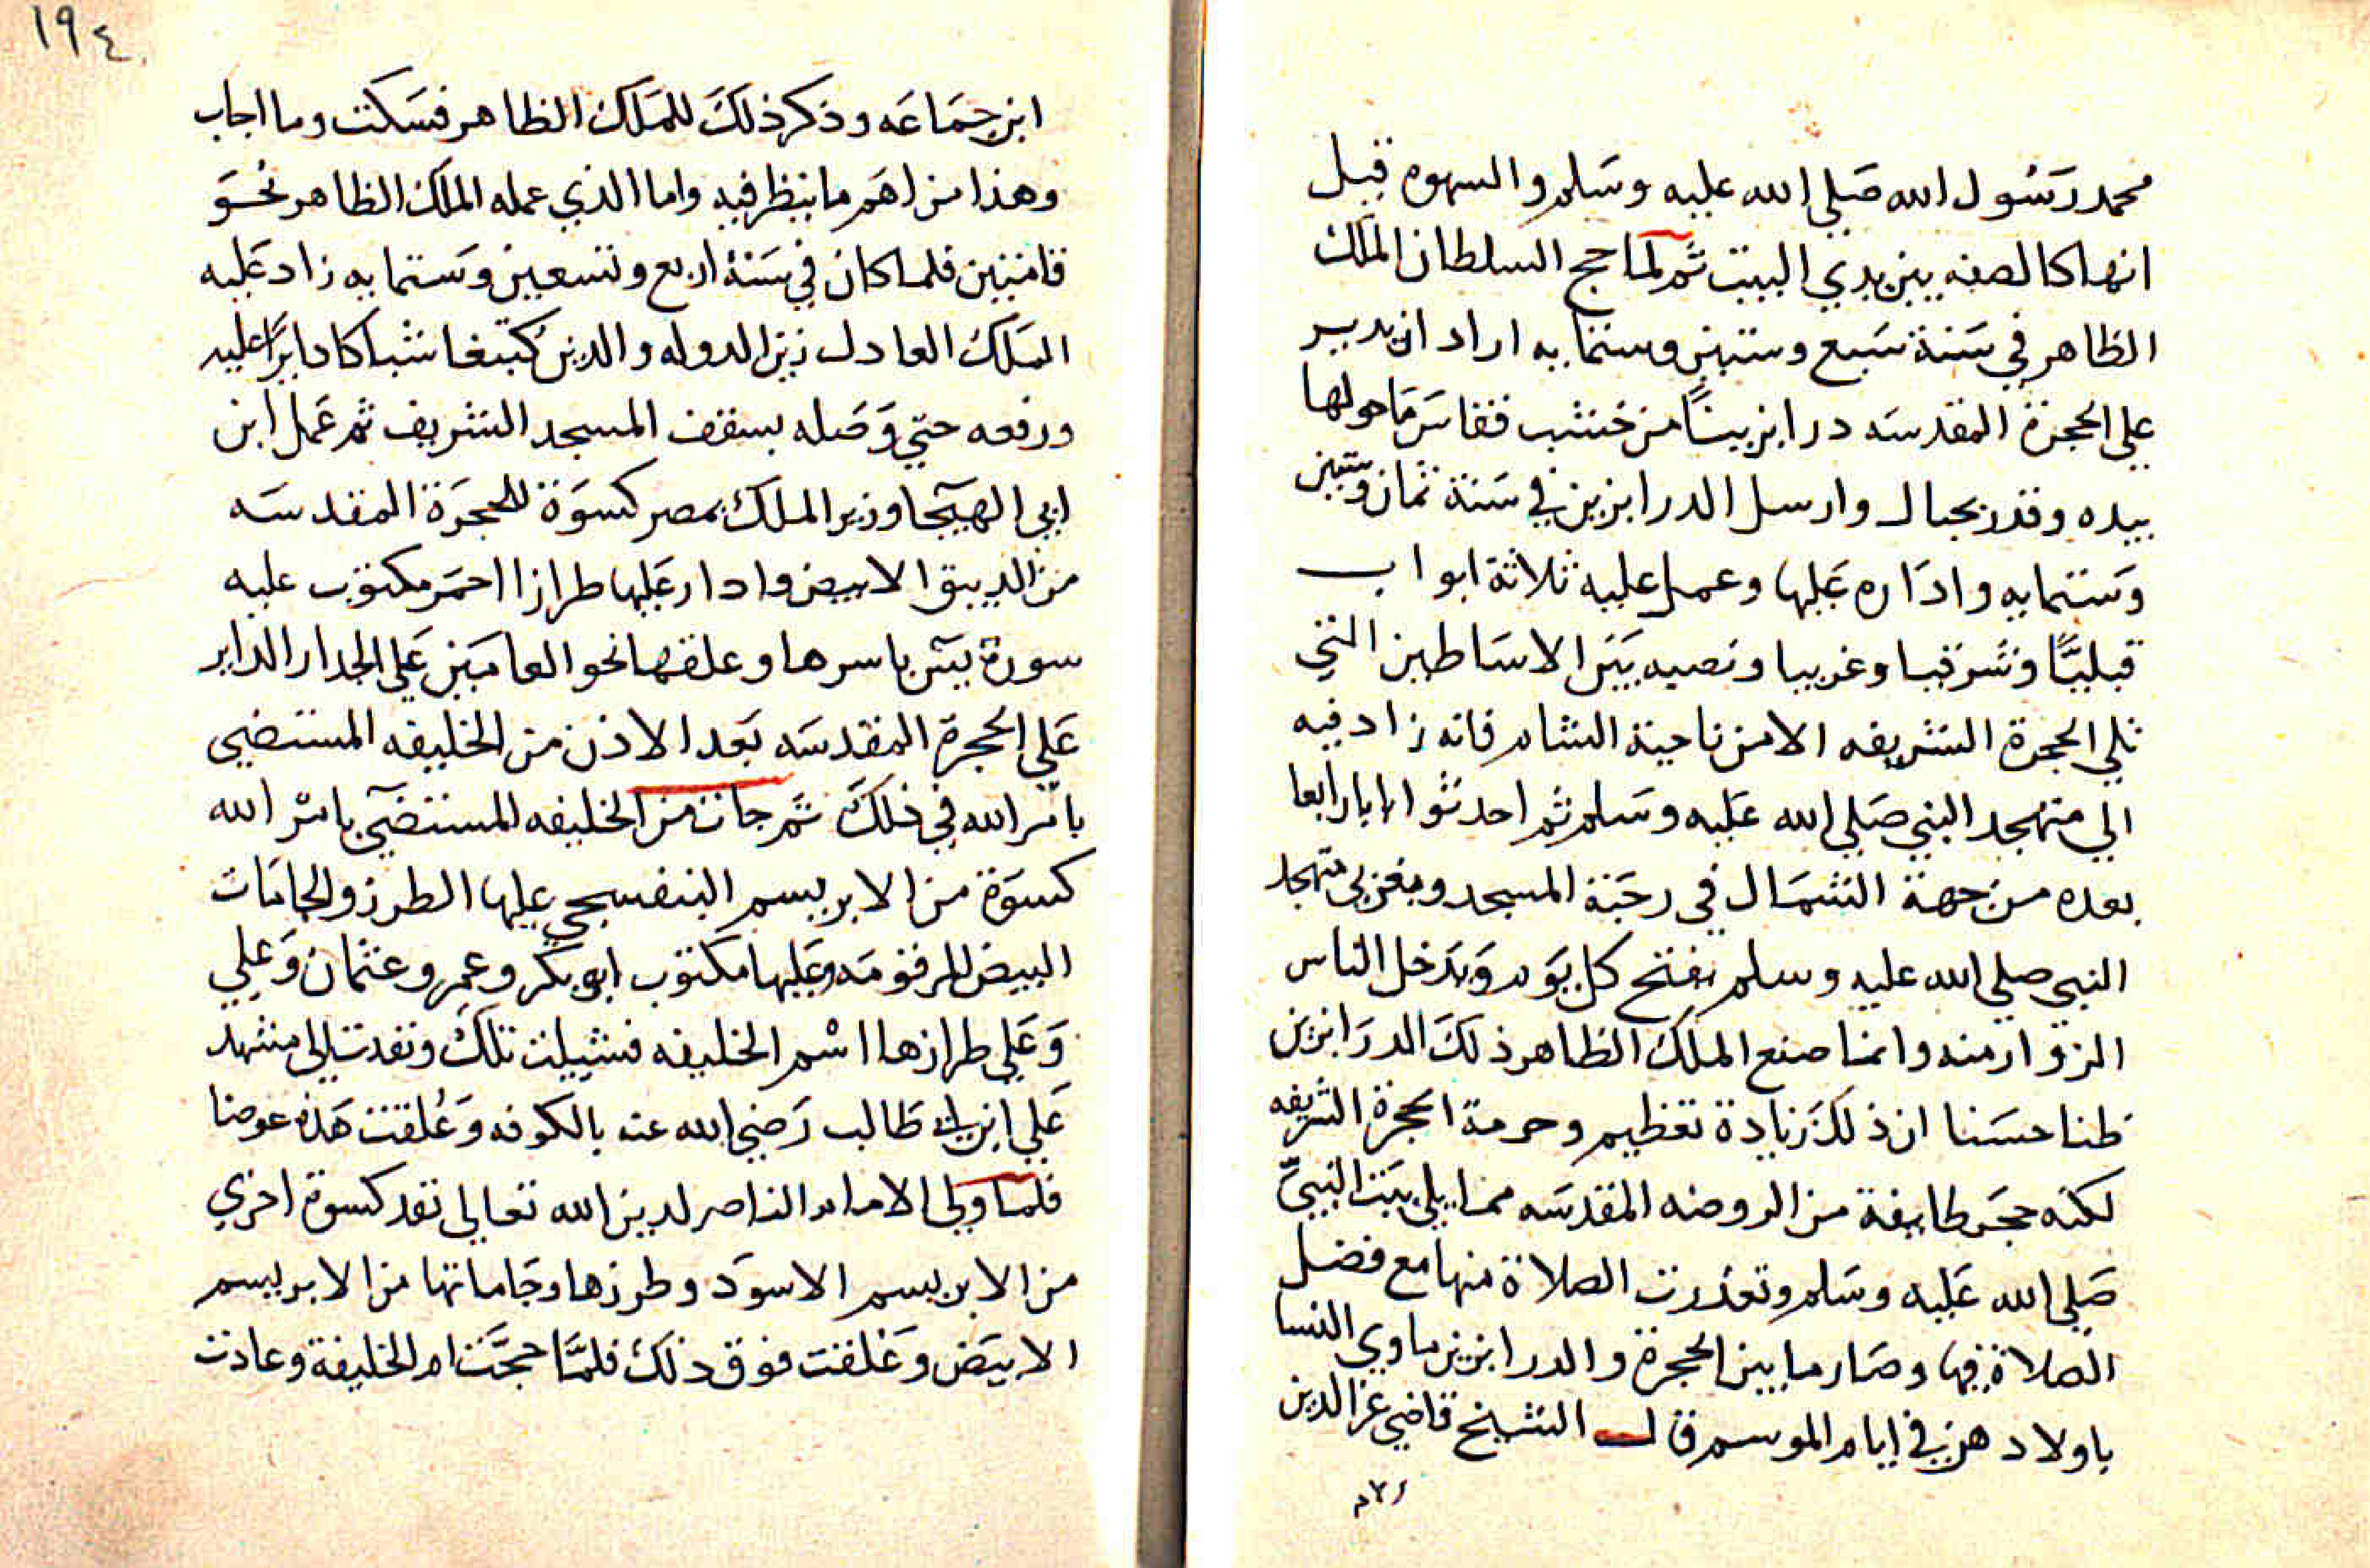 محمد رسول الله صلي الله عليه وسلم والسهوه قيل
انها كالصفه بين يدي البيت ثم لما حج السلطان الملك
الظاهر في سنة سبع وستين وستمايه اراد ان يدير
علي الحجرة المقدسه درابزينًا من خشب فقاس ما حولها
بيده وقدر بحبال وارسل الدرابزين في سنة ثمان وستين
وستمايه واداره عليها وعمل عليه ثلاثة ابواب
قبليًّا وشرقيا وغربيا ونصبه بين الاساطين التي
تلي الحجرة الشريفه الا من ناحية الشام فانه زاد فيه
الي متهجد النبي صلي الله عليه وسلم ثم احدثوا بابا رابعا
بعده من جهة الشمال في رحبة المسجد وبغربي متهجد
النبي صلي الله عليه وسلم يفتح كل يوم ويدخل الناس
الزوار منه وانما صنع الملك الظاهر ذلك الدرابزين
ظنا حسنا ان ذلك زيادة تعظيم وحرمة الحجرة الشريفه
لكنه حجر طايفة من الروضه المقدسه مما يلي بيت النبيّ
صلي الله عليه وسلم وتعذرت الصلاة منها مع فضل
الصلاة فيها وصار ما بين الحجرة والدرابزين ماوي النسا
باولادهن في ايام الموسم قال الشيخ قاضي عز الدين
١٩٤
ابن جماعه وذكر ذلك للملك الظاهر فسكت وما اجاب
وهذا من اهم ما ينظر فيه واما الذي عمله الملك الظاهر نحو
قامتين فلما كان في سنة اربع وتسعين وستمايه زاد عليه
الملك العادل زين الدوله والدين كتبغا شباكا دايرًا عليه
ورفعه حتي وصله بسقف المسجد الشريف ثم عمل ابن
ابي الهيجا وزير الملك بمصر كسوة للحجرة المقدسه
من الدبيق الابيض وادار عليها طرازا احمر مكتوب عليه
سورة يس باسرها وعلقها نحو العامين علي الجدار الداير
علي الحجرة المقدسه بعد الاذن من الخليفه المستضيي
بامر الله في ذلك ثم جات من الخليفه المستضيي بامر الله
كسوة من الابريسم البنفسجي عليها الطرز والجامات
البيض المرقومه وعليها مكتوب ابو بكر وعمر وعثمان وعلي
وعلي طرازها اسم الخليفه فشيلت تلك ونفدت الي مشهد
علي ابن ابي طالب رضي الله عنه بالكوفه وعُلقت هذه عوضا
فلما ولي الامام الناصر لدين الله تعالي نفد كسوة اخري
من الابريسم الاسود وطرزها وجاماتها من الابريسم
الابيض وعُلقت فوق ذلك فلمّا حجّت ام الخليفة وعادت